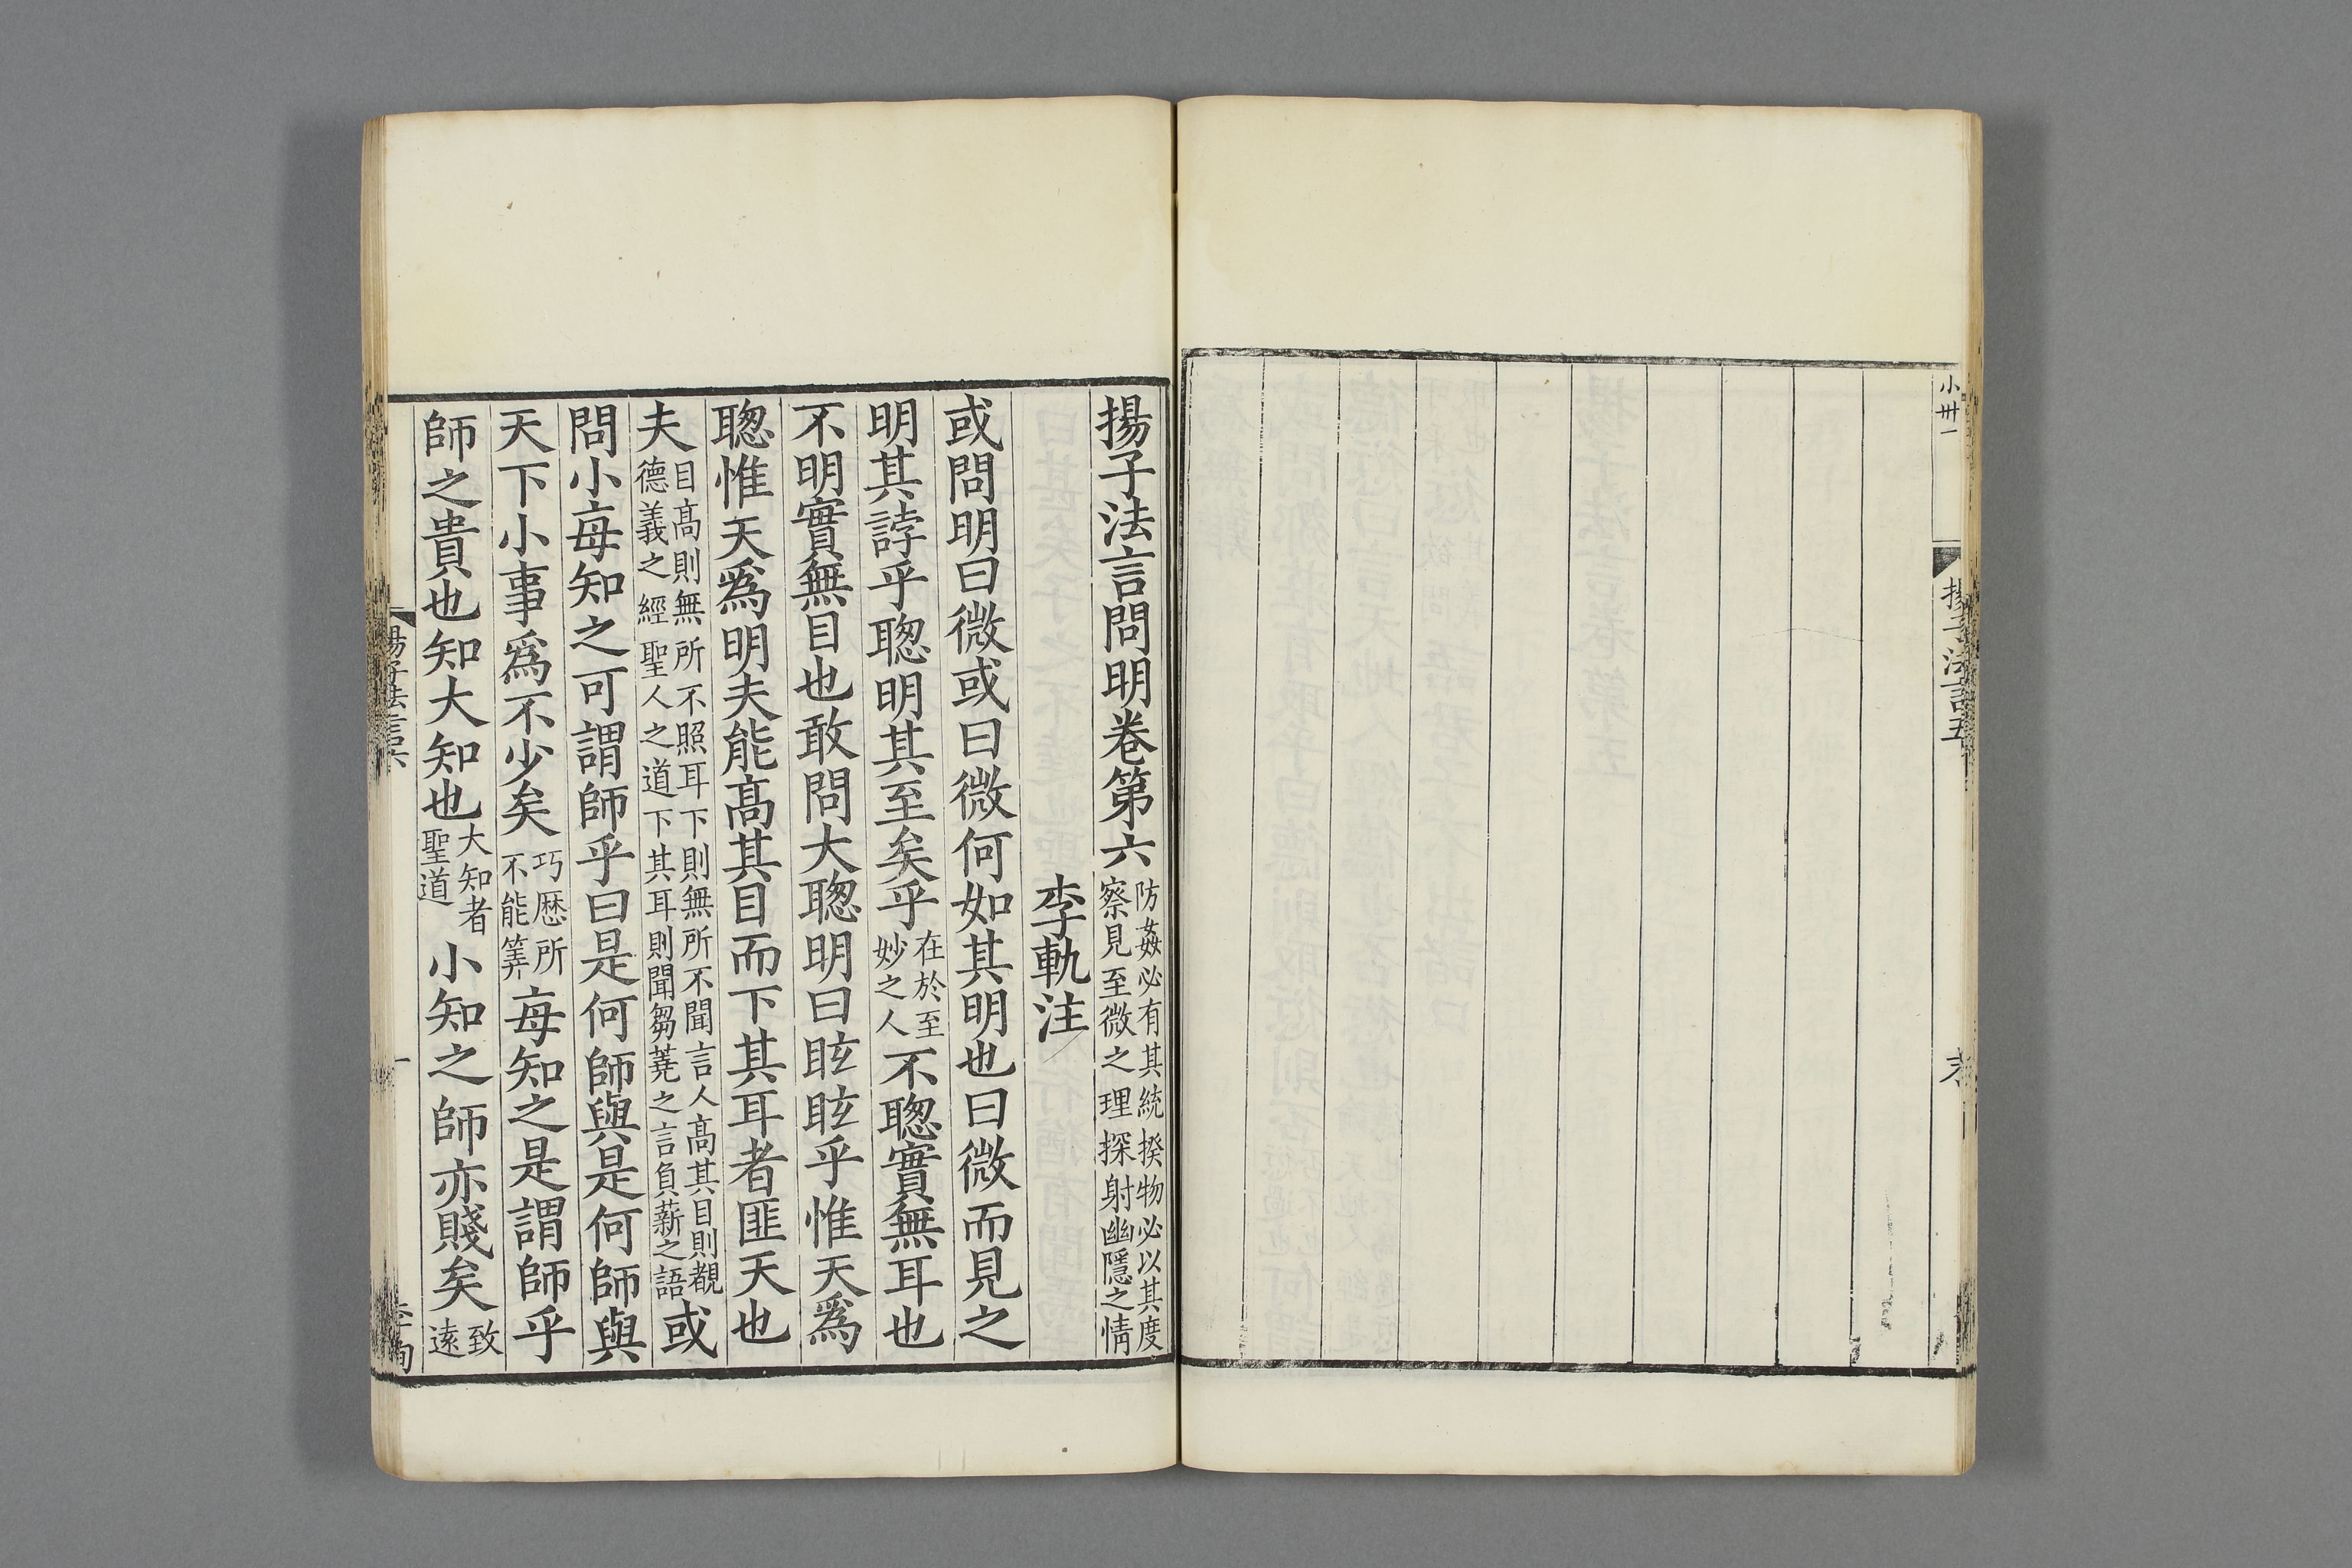 小卅一
揚子法言五
揚子法言問明卷第六 防姦必有其統揆物必以其度察見至微之理探射幽隱之情
李軌注
或問明曰微或曰微何如其明也曰微而見之
明其誖乎聦明其至矣乎 在於至妙之人 不聦實無耳也
不明實無目也敢問大聦明曰眩眩乎惟天爲
聦惟天爲明夫能髙其目而下其耳者匪天也
夫 目髙則無所不照耳下則無所不聞言人髙其目則覩德義之經聖人之道下其耳則聞芻蕘之言負薪之語 或
問小每知之可謂師乎曰是何師與是何師與
天下小事爲不少矣 巧厯所不能筭 每知之是謂師乎
師之貴也知大知也 大知者聖道 小知之師亦賤矣 致逺
揚子法言六
一